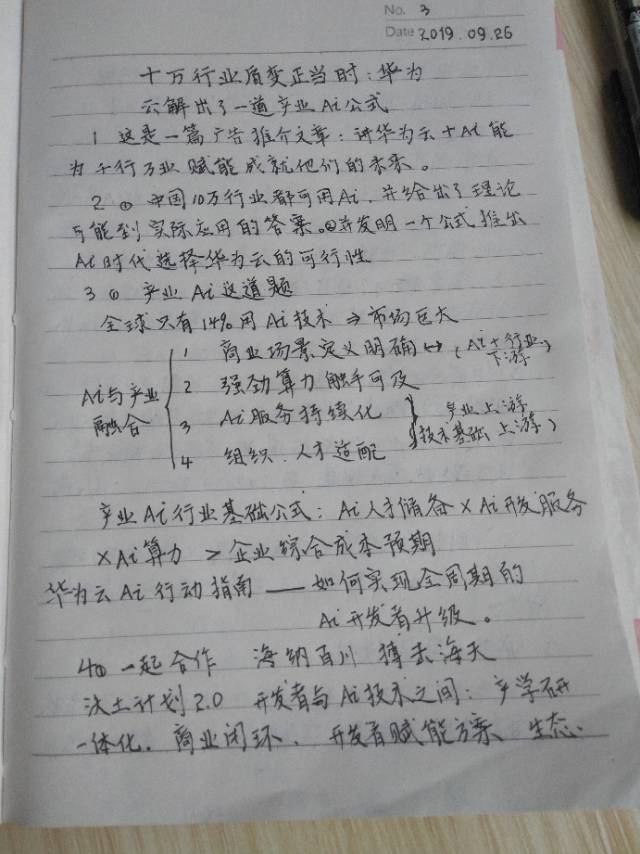 No. 3
Date 2019.09.26
十万行业质变正当时：华为
云解出了一道产业Ai公式
1 这是一篇广告推介文章：讲华为云+Ai能
为千行万业赋能成就他们的未来。
2 ① 中国10万行业都可用Ai，并给出了理论
可能到实际应用的答案。②并发明一个公式推出
Ai时代选择华为云的可行性
3 ① 产业Ai这道题
全球只有14%用Ai技术 ⇒市场巨大
Ai与产业融合
1 商业场景定义明确↔(Ai+行业下游)
2 强劲算力触手可及
3 Ai服务持续化
4 组织.人才适配
产业上游
(技术基础上游)
产业Ai行业基础公式：Ai人才储备×Ai开发服务
×Ai算力 > 企业综合成本预期
华为云Ai行动指南——如何实现全周期的
Ai开发者升级。
4① 一起合作 海纳百川 搏击海天
沃土计划2.0 开发者与Ai技术之间：产学研
一体化.商业闭环.开发者赋能方案 生态.